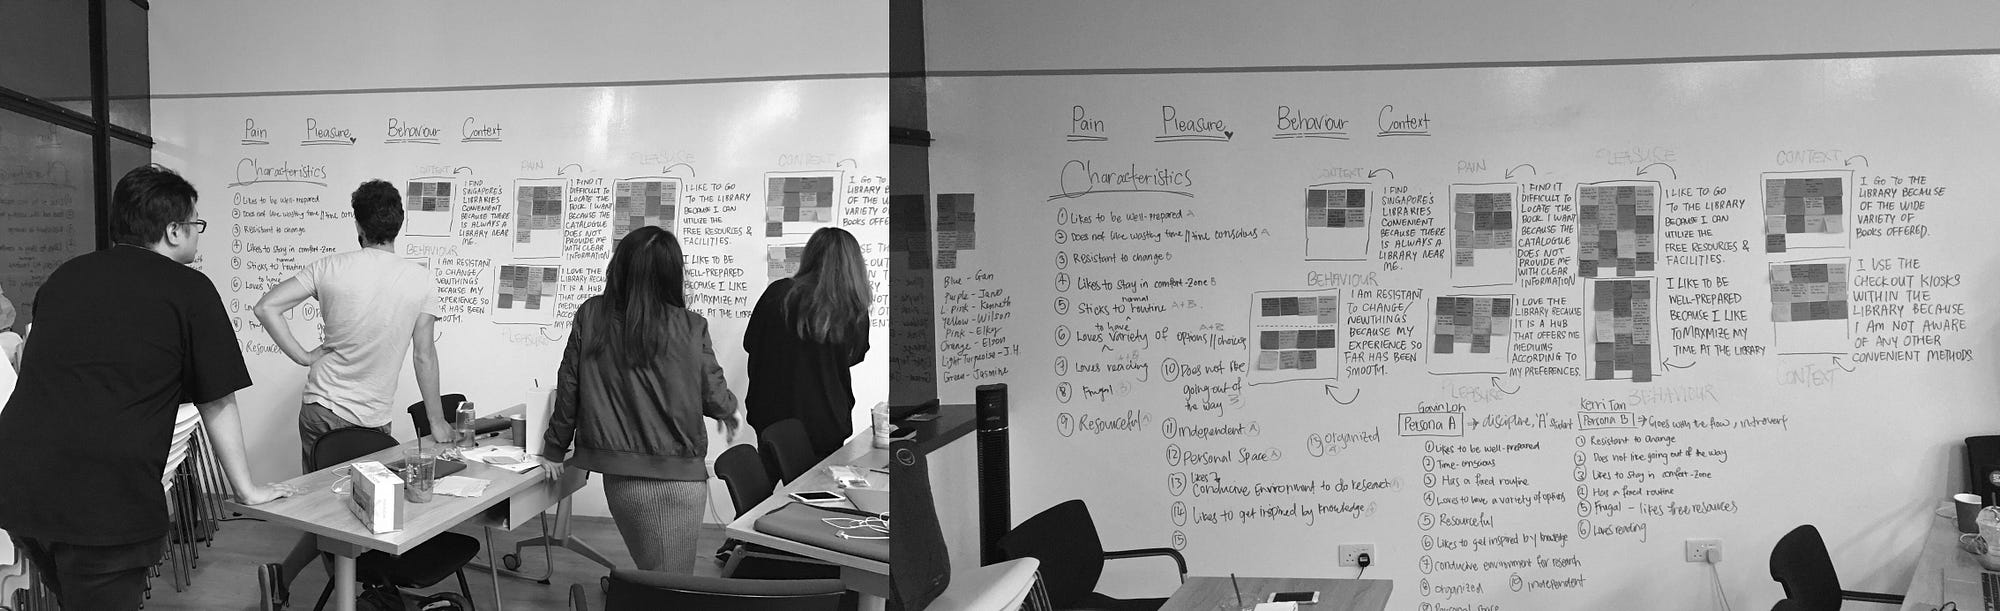 Pain Pleasure Behaviour Context
Characteristics
① Likes to be well-prepared
② Does not like wasting time // time
③ Resistant to change
④ Likes to stay in comfort-zone
⑤ Sticks to normal routine
to have
⑥ Loves
⑦ Loves
⑧
⑨ Resourceful
CONTEXT
I FIND
SINGAPORE'S
LIBRARIES
CONVENIENT
BECAUSE THERE
IS ALWAYS A
LIBRARY NEAR
ME.
PAIN
I FIND IT
DIFFICULT TO
LOCATE THE
BOOK I WANT
BECAUSE THE
CATALOGUE
DOES NOT
PROVIDE ME
WITH CLEAR
INFORMATION
PLEASURE
I LIKE TO GO
TO THE LIBRARY
BECAUSE I CAN
UTILIZE THE
FREE RESOURCES &
FACILITIES.
CONTEXT
I GO TO THE
LIBRARY BECAUSE
OF THE WIDE
VARIETY OF
BOOKS OFFE
BEHAVIOUR
I AM RESISTANT
TO CHANGE/
NEWTHINGS
BECAUSE MY
EXPERIENCE SO
FAR HAS BEEN
SMOOTH.
I LOVE THE
LIBRARY BECAU
IT IS A HUB
THAT OFFERS
PLEASURE
I LIKE TO BE
WELL-PREPARED
BECAUSE I LIKE
TO MAXMIZE MY
TIME AT THE LIBR
Pain Pleasure Behaviour Context
Characteristics
① Likes to be well-prepared A
② Does not like wasting time // time conscious A
③ Resistant to change B
④ Likes to stay in comfort-zone B
⑤ Sticks to normal routine A+B
to have
⑥ Loves variety of options // choices A+B
⑦ Loves reading A+B
⑧ Frugal B
⑨ Resourceful A
⑩ Does not like
going out of
the way B
⑪ Independent A
⑫ Personal Space A
⑬ Likes
Conducive Environment to do research A
⑭ Likes to get inspired by knowledge A
⑮
⑬ organized
A
Blue - Gan
Purple - Jane
L. Pink - Kenneth
Yellow - Wilson
Pink - Elky
Orange - Elson
Light Turquoise - J.H.
Green - Jasmine
CONTEXT
I FIND
SINGAPORE'S
LIBRARIES
CONVENIENT
BECAUSE THERE
IS ALWAYS A
LIBRARY NEAR
ME.
PAIN
I FIND IT
DIFFICULT TO
LOCATE THE
BOOK I WANT
BECAUSE THE
CATALOGUE
DOES NOT
PROVIDE ME
WITH CLEAR
INFORMATION
PLEASURE
I LIKE TO GO
TO THE LIBRARY
BECAUSE I CAN
UTILIZE THE
FREE RESOURCES &
FACILITIES.
CONTEXT
I GO TO THE
LIBRARY BECAUSE
OF THE WIDE
VARIETY OF
BOOKS OFFERED.
BEHAVIOUR
I AM RESISTANT
TO CHANGE/
NEWTHINGS
BECAUSE MY
EXPERIENCE SO
FAR HAS BEEN
SMOOTH.
I LOVE THE
LIBRARY BECAUSE
IT IS A HUB
THAT OFFERS ME
MEDIUMS
ACCORDING TO
MY PREFERENCES.
PLEASURE
I LIKE TO BE
WELL-PREPARED
BECAUSE I LIKE
TO MAXMIZE MY
TIME AT THE LIBRARY
BEHAVIOUR
I USE THE
CHECKOUT KIOSKS
WITHIN THE
LIBRARY BECAUSE
I AM NOT AWARE
OF ANY OTHER
CONVENIENT METHODS
CONTEXT
Gavin Loh
Persona A → discipline, 'A' student
① Likes to be well-prepared
② Time-conscious
③ Has a fixed routine
④ Loves to have a variety of options
⑤ Resourceful
⑥ Likes to get inspired by knowledge
⑦ conducive environment for research
⑧ organized ⑩ independent
⑨ Personal space
Kerri Tan
Persona B → Goes with the flow, introvert
① Resistant to change
② Does not like going out of the way
③ Likes to stay in comfort-zone
④ Has a fixed routine
⑤ Frugal - likes free resources
⑥ Loves reading